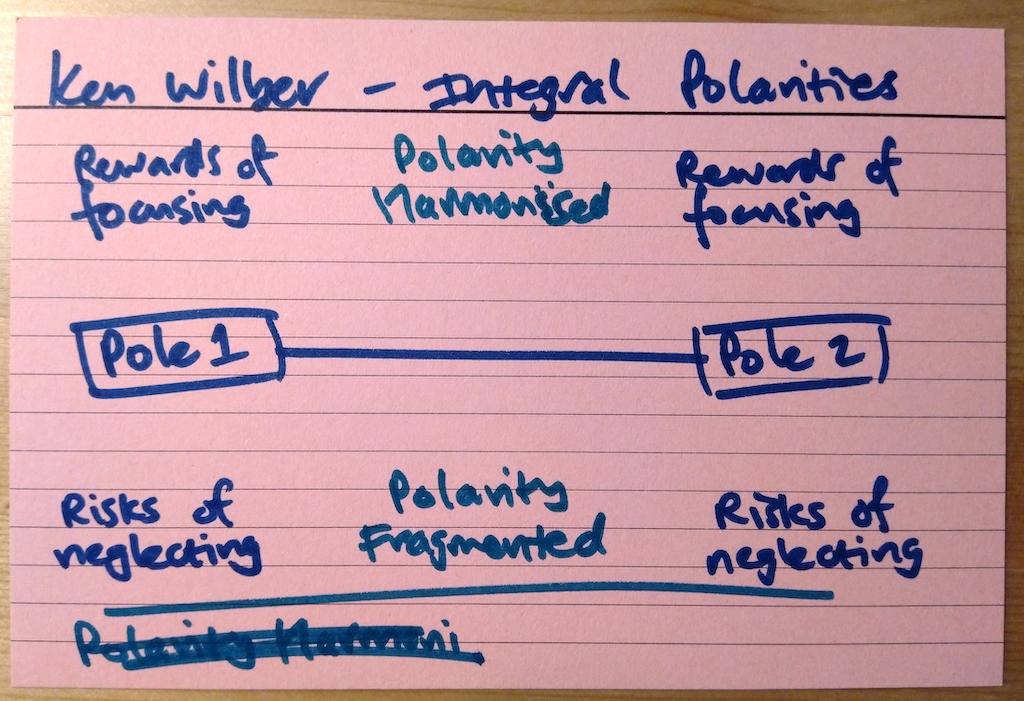 Ken Wilber - Integral Polarities
Rewards of
focusing
Polarity
Harmonised
Rewards of
focusing
Pole 1
Pole 2
Risks of
neglecting
Polarity
Fragmented
Risks of
neglecting
Polarity Harmoni